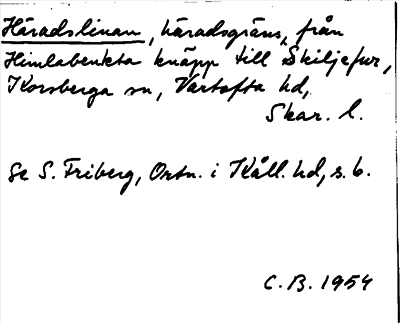 Häradslinan, häradsgräns, från
Himlabenkta knäpp till Skiljefur,
Korsberga sn, Vartofta hd,
Skar. l.
Se S. Friberg, Ortn. i Kåll. hd, s. 6.
C. B. 1954